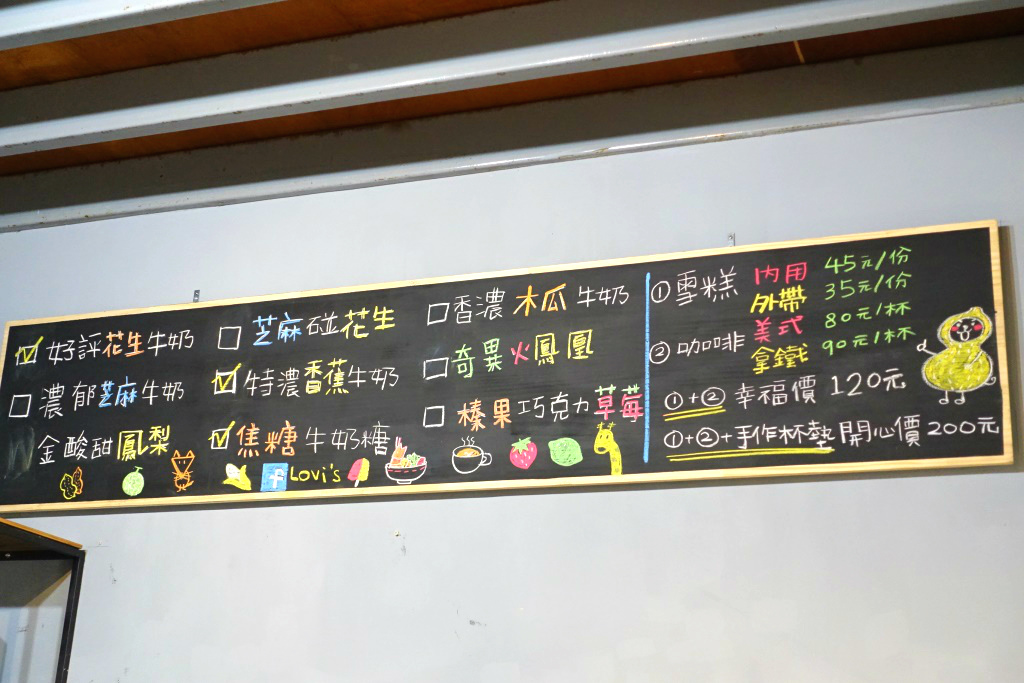 好評花生牛奶
濃郁芝麻牛奶
金酸甜鳳梨
芝麻碰花生
特濃香蕉牛奶
焦糖牛奶糖
Lovi's
香濃木瓜牛奶
奇異火鳳凰
榛果巧克力草莓
①雪糕 內用 45元/份
外帶 35元/份
②咖啡 美式 80元/杯
拿鐵 90元/杯
①+② 幸福價 120元
①+②+手作杯墊 開心價 200元